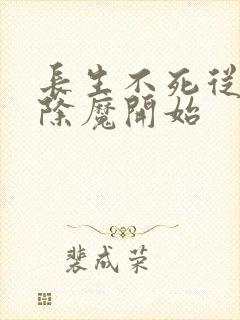 長生不死從
除魔開始
裴成荣